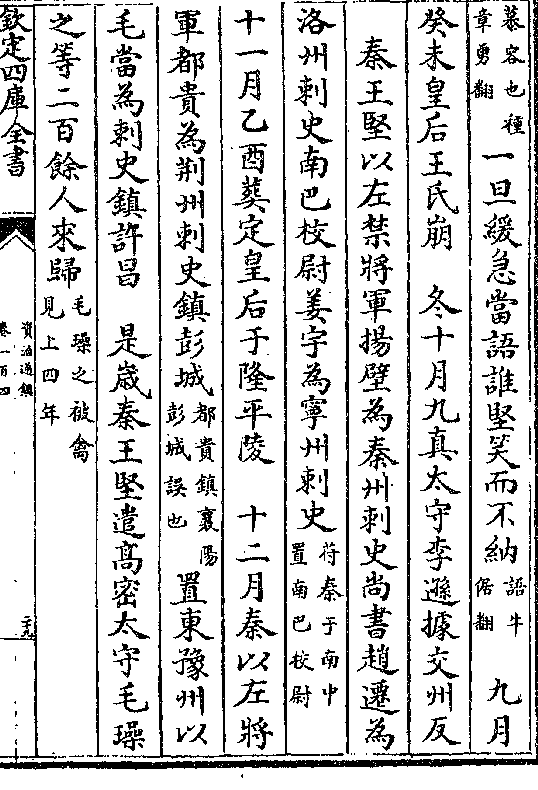 慕容也種章勇翻一旦緩急當語誰堅笑而不納語牛倨翻 九月
癸未皇后王氏崩 冬十月九真太守李遜據交州反
秦王堅以左禁將軍揚壁為秦州刺史尚書趙遷為
洛州刺史南巴校尉姜宇為寧州刺史苻秦于南中置南巴校尉
十一月乙酉葬定皇后于隆平陵 十二月秦以左將
軍都貴為荆州刺史鎮彭城都貴鎮襄陽彭城誤也 置東豫州以
毛當為刺史鎮許昌 是歲秦王堅遣高密太守毛璪
之等二百餘人來歸毛璪之被禽見上四年
欽定四庫全書
資治通鑑
卷一百四
二十九